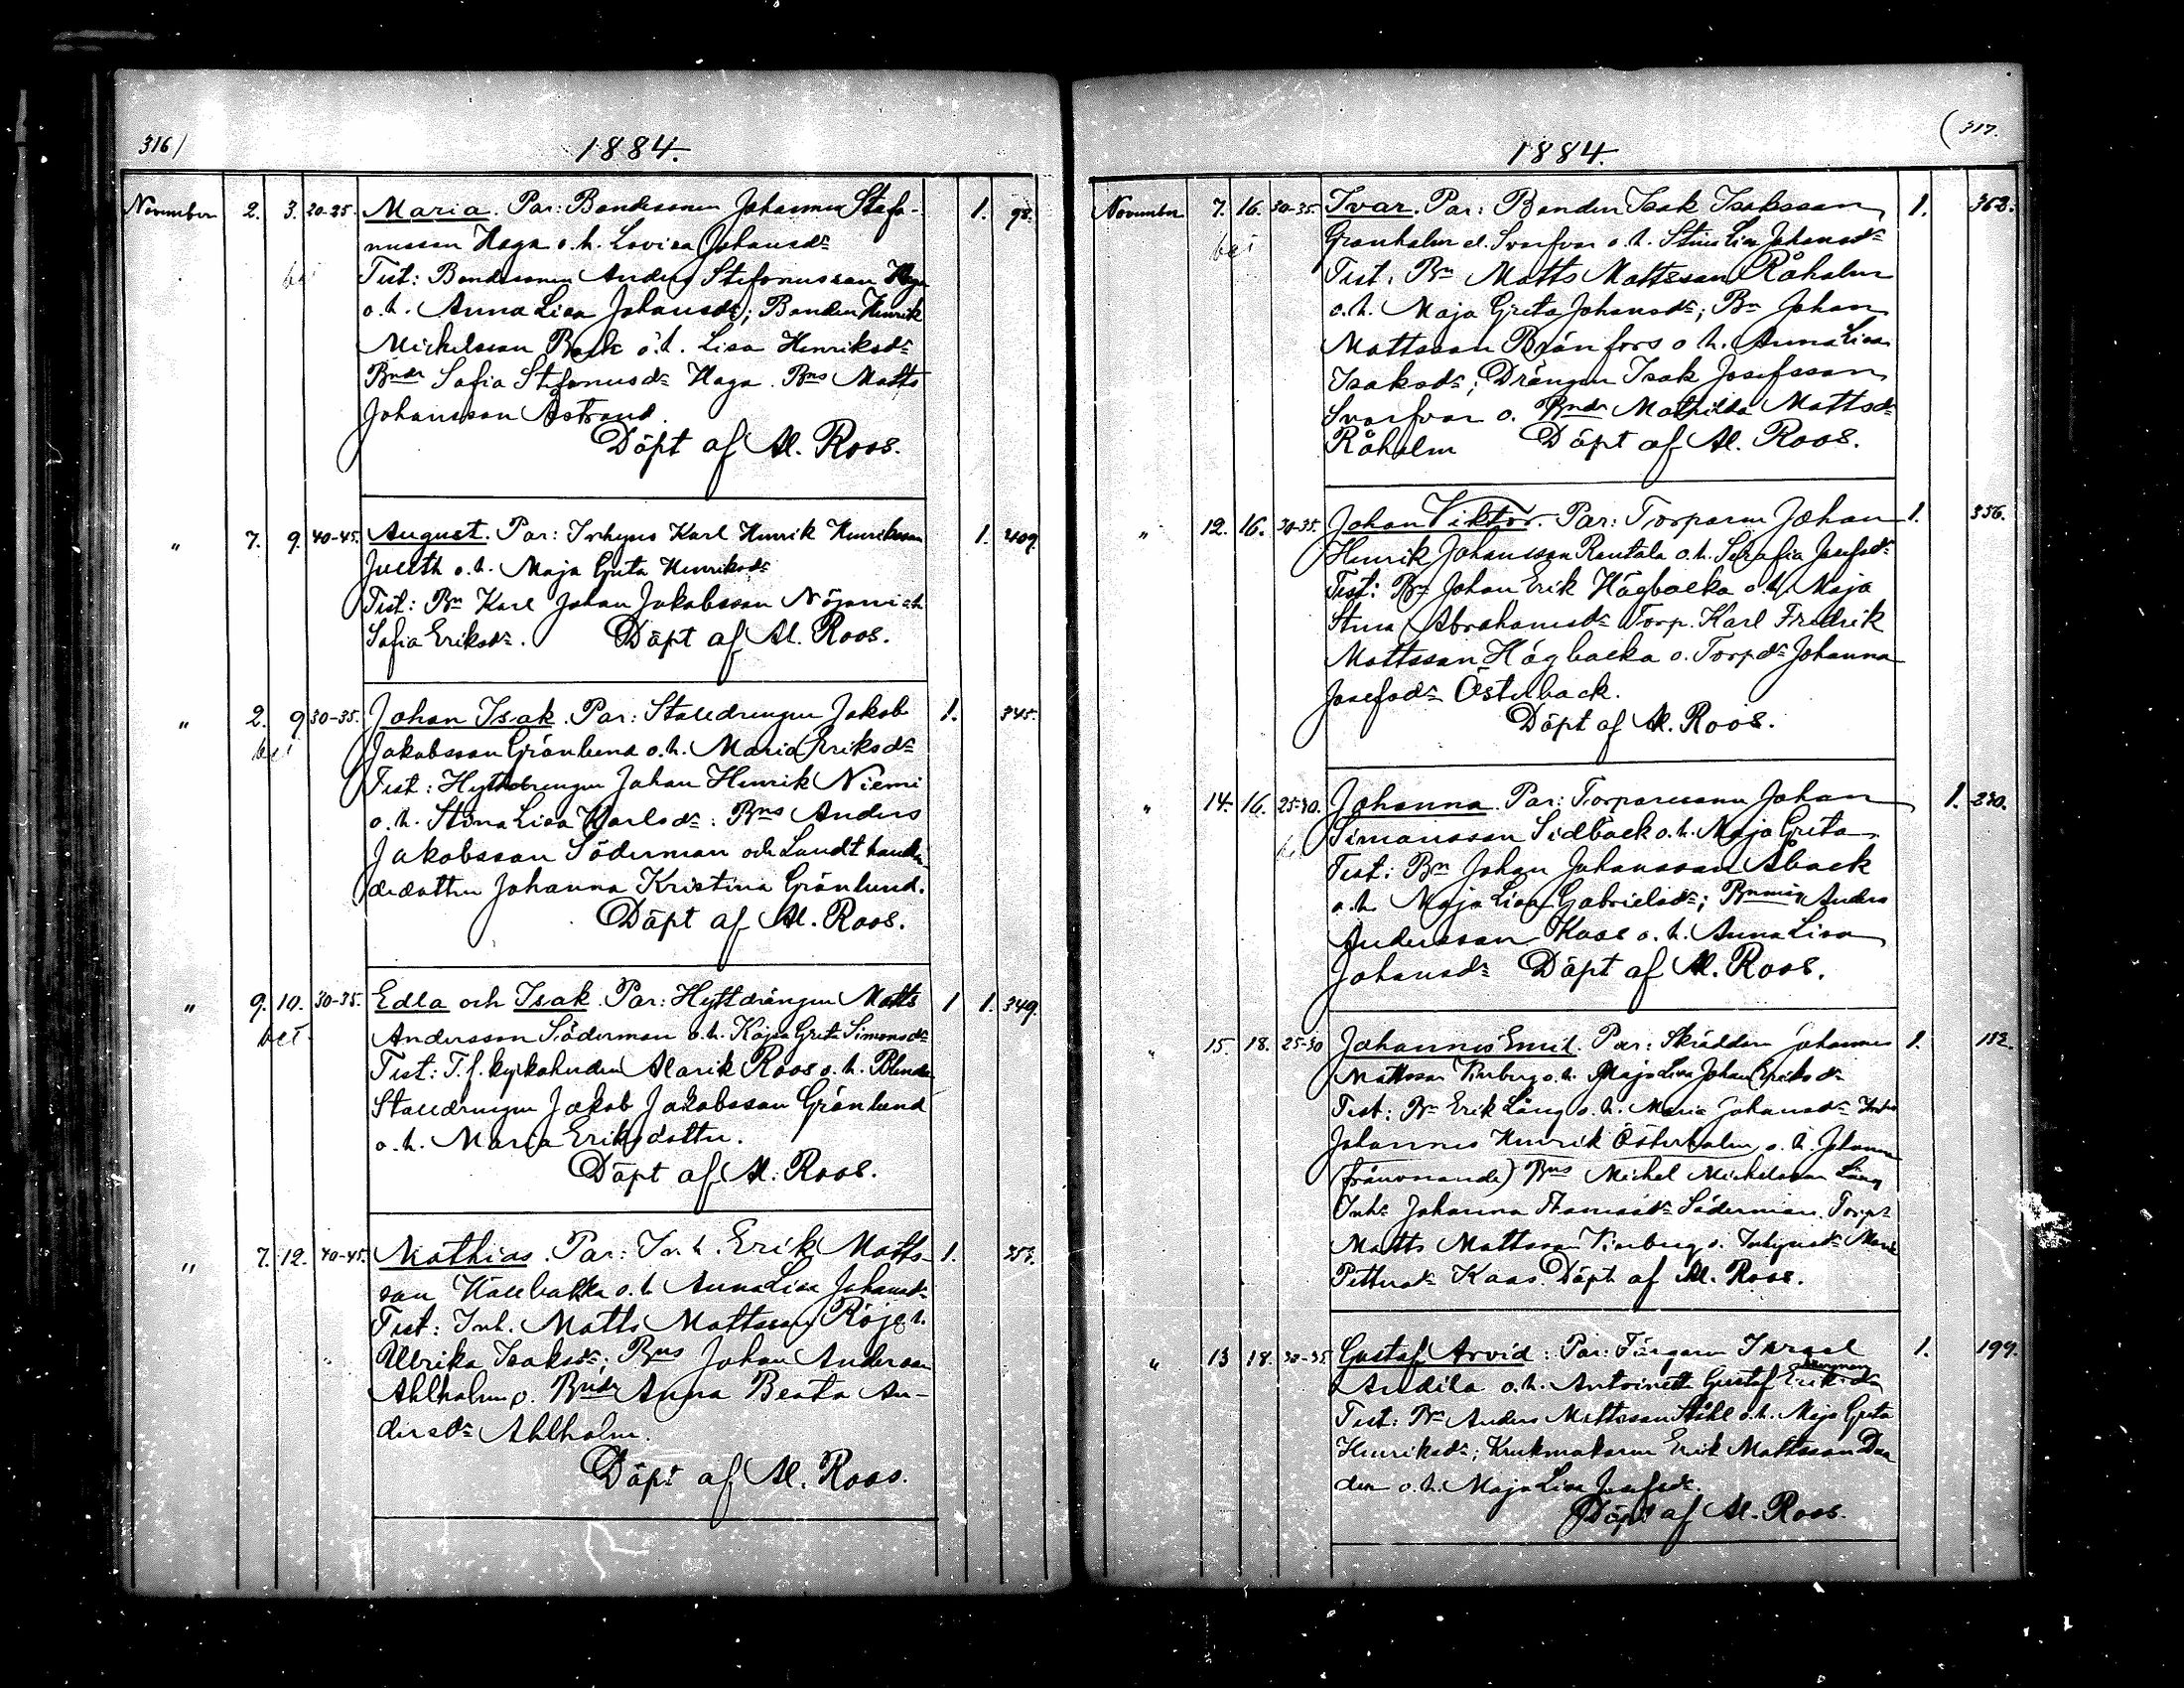 316)
1884.
November 2. 3. 20-25. Maria. Par: Bondesonen Johannes Stefa- 1. 98.
nusson Haga o. h. Lovisa Johansdr
Test: Bondesonen Anders Stefanusson Haga
o. h. Anna Lisa Johansdr; Bonden Henrik
Mickelsson Back o. h. Lisa Henriksdr
Bndr Sofia Stefanusdr Haga. Bns Matts
Johansson Åstrand.
Döpt af Al. Roos.
" 7. 9. 40-45. August. Par: Inhyses Karl Henrik Henriksson 1. 209.
o. h. Maja Greta Henriksdr
Test: Bn Karl Johan Jakobsson o. h.
Sofia Eriksdr. Döpt af Al. Roos.
" 2. 9 30-35. Johan Isak. Par: Stalledrengen Jakob 1. 345.
bet
Jakobsson Grönlund o. h. Maria Eriksdr
Test: Hyttedrengen Johan Henrik Niemi
o. h. Stina Lisa Karlsdr: Bns Anders
Jakobsson Söderman och Landthand-
dedotter Johanna Kristina Grönlund.
Döpt af Al. Roos.
" 9. 10. 30-35. Edla och Isak. Par: Hyttdrängen Matts 1 1. 349.
bet
Andersson Söderman o. h. Kajsa Greta Simonsdr
Test: T. f. kyrkoherden Alarik Roos o. h. Blenda
Stalledrengen Jakob Jakobsson Grönlund
o. h. Maria Eriksdotter.
Döpt af Al. Roos.
" 7. 12. 40-45. Mathias. Par: Inh. Erik Matts- 1. 353.
son Källbacka o. h. Anna Lisa Johansdr
Test: Inh. Matts Mattsson Röj o. h.
Ullrika Isaksdr; Bns Johan Andersson
Ahlholm o. Bndr Anna Beata An-
dersdr Ahlholm.
Döpt af Al. Roos.
(317.
1884.
November 7. 16. 30-35. Ivar. Par: Bonden Isak Isaksson 1. 363.
bet
Granholm el. Svarfvar o. h. Stina Lisa Johansdr
Test: Bn Matts Mattsson Råholm
o. h. Maja Greta Johansdr; Bn Johan
Mattsson Brånfors o. h. Anna Lisa
Isaksdr; Drängen Isak Josefsson
Svarfvar o. Bndr Mathilda Mattsdr
Råholm Döpt af Al. Roos.
" 12. 16. 30-35. Johan Viktor. Par: Torparen Johan 1. 356.
Henrik Johansson Rautala o. h. Serafia Josefsdr
Test: Bn Johan Erik Högbacka o. h. Maja
Stina Abrahamsdr Torp. Karl Fredrik
Mattsson Högbacka o. Torpdr Johanna
Josefsdr Österback.
Döpt af Al. Roos.
" 14. 16. 25-30. Johanna. Par: Torparesonen Johan 1. 230.
Simonsson Sidbäck o. h. Maja Greta
Test: Bn Johan Johansson Åback
o. h. Maja Lisa Gabrielsdr; Bnmåg Anders
Andersson Kaas o. h. Anna Lisa
Johansdr Döpt af Al. Roos.
" 15. 18. 25-30 Johannes Emil. Par: Skräddare Johannes 1. 182.
Mattsson Finberg o. h. Maja Lisa Johan Eriksdr
Test: Bn Erik Läng o. h. Maria Johansdr Inhs
Johannes Henrik Österholm o. h. Johanna
(frånvarande) Bns Michel Michelsson Läng
Inhs Johanna Thomasdr Söderman. Torps
Matts Mattsson Finberg o. Inhysdr Maria
Pettersdr Kaas. Döpt af Al. Roos.
" 13 18. 30-35 Gustaf Arvid. Par: Färgaren Israel 1. 199.
Andila o. h. Antoinette Gustaf Eriksdr
Test: Bn Anders Mattsson Ståhl o. h. Maja Greta
Henriksdr; Krukmakaren Erik Mattsson
o. h. Maja Lisa Josefsdr.
Döpt af Al. Roos.